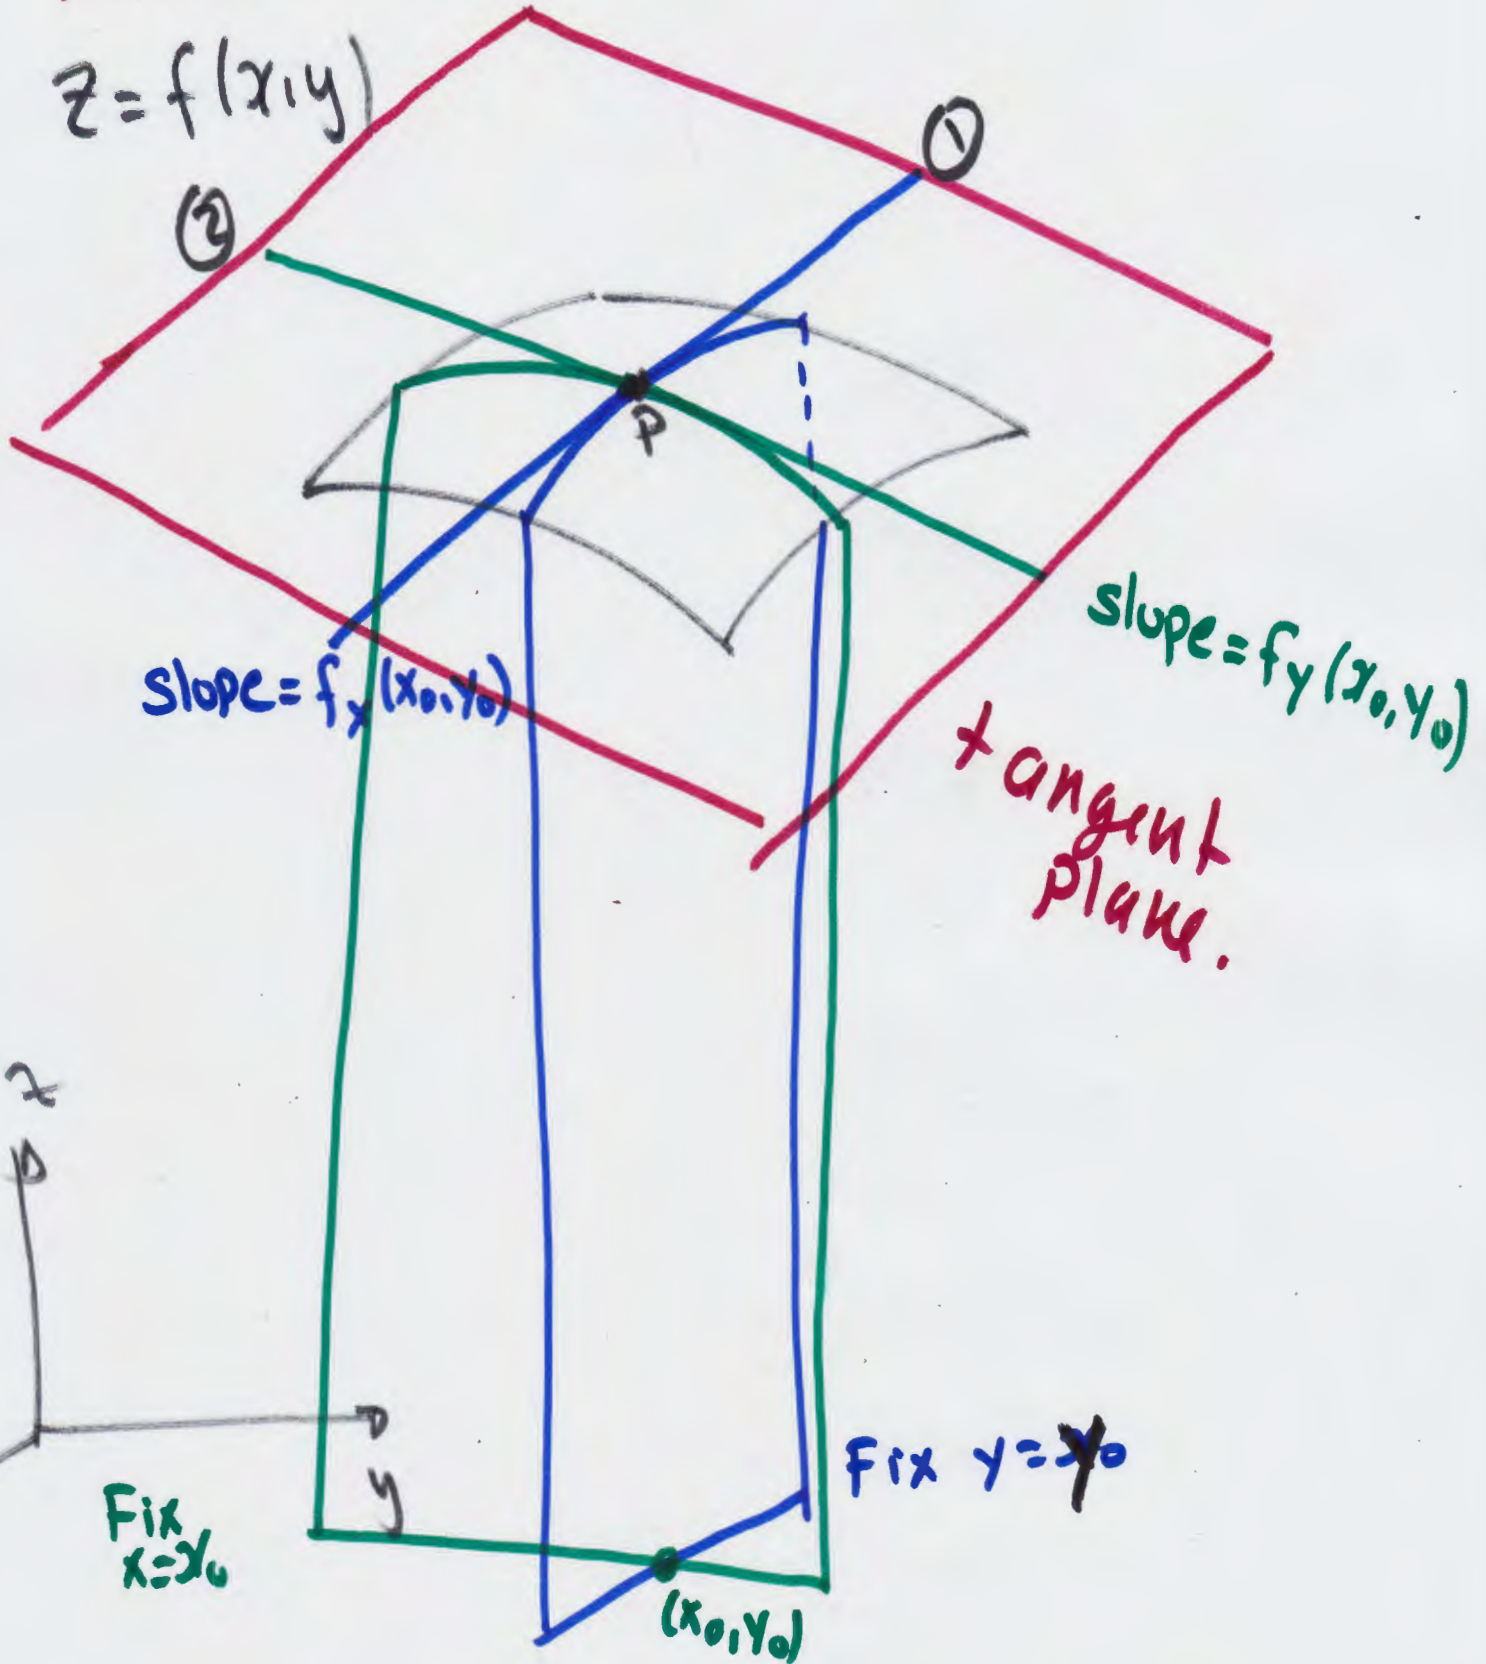 z = f(x,y)
①
②
P
slope = f_x(x₀,y₀)
slope = f_y(x₀,y₀)
tangent
plane.
z
y
Fix y = y₀
Fix
x = x₀
(x₀,y₀)